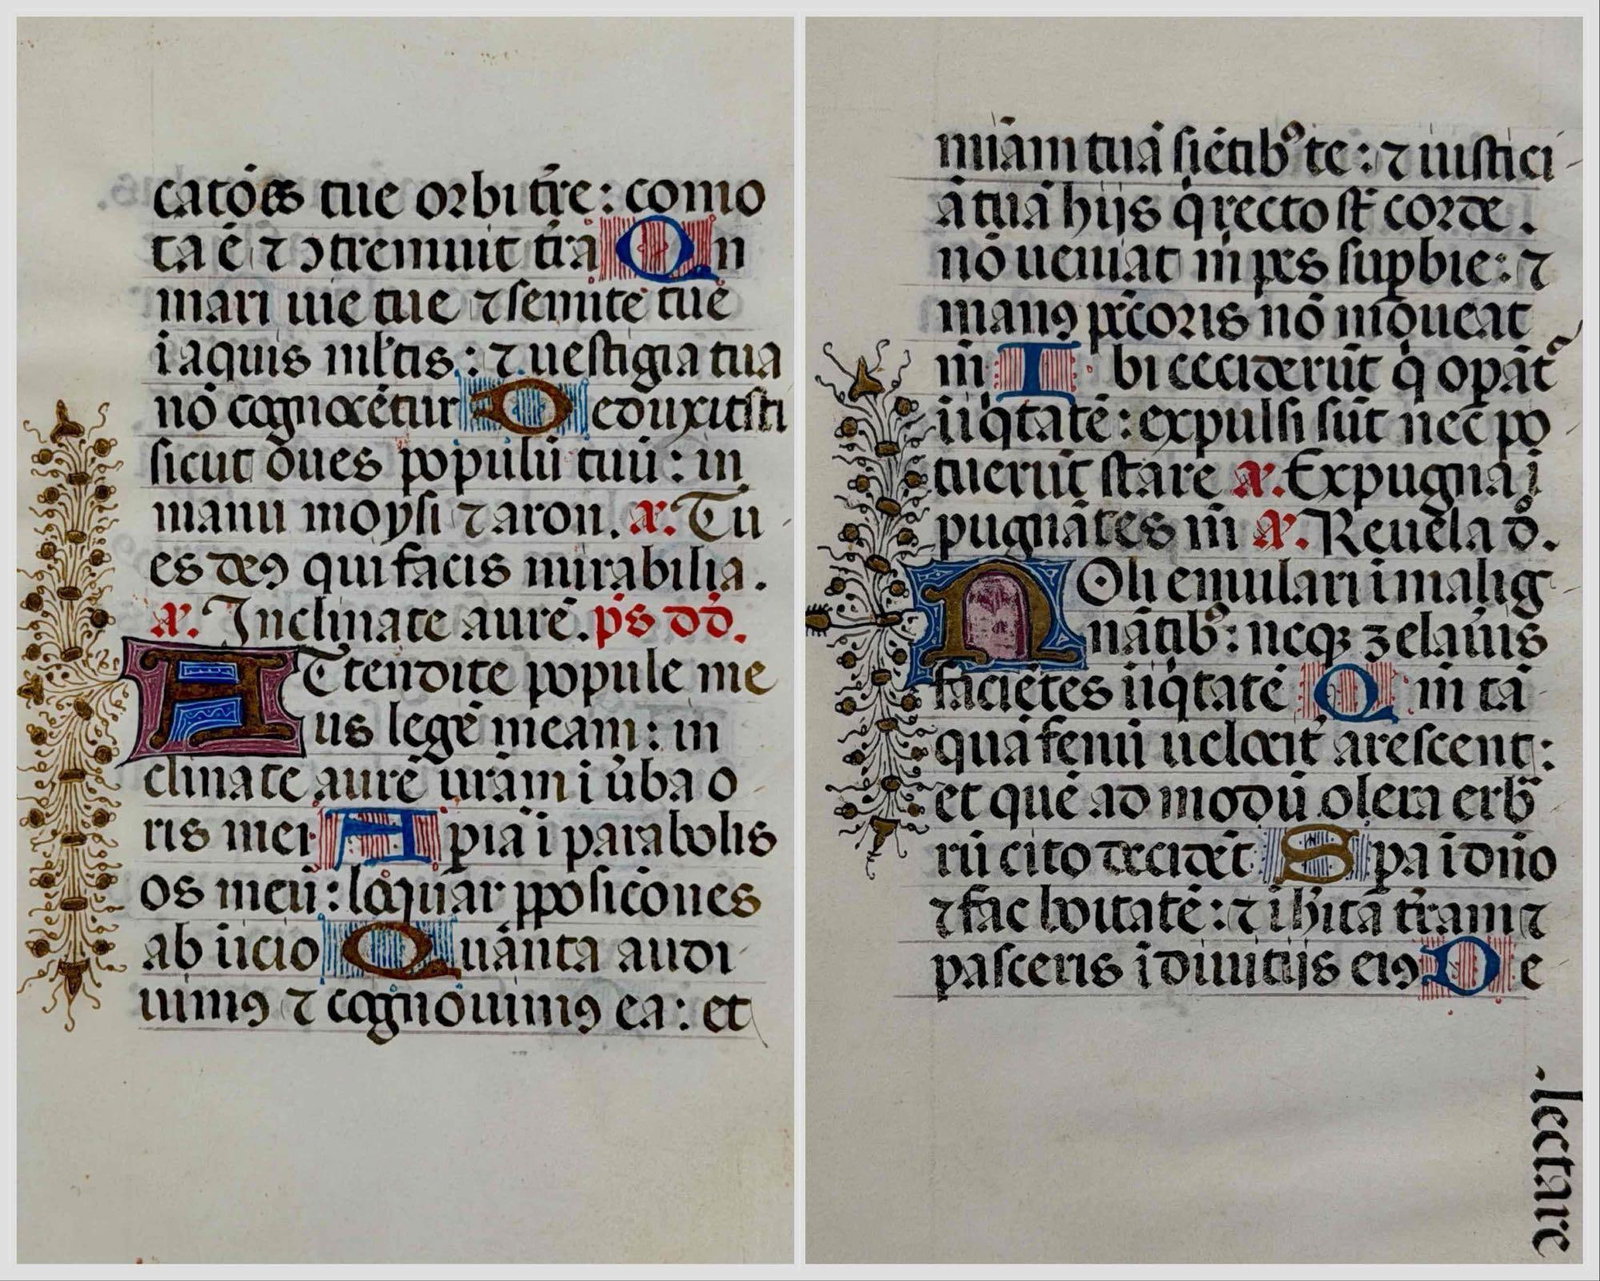 catōēs tue orbi tr̄e: como
ta ē ⁊ ↄtremuit tr̄a Qn
mari uie tue ⁊ semite tue
ī aquis ml̄tis: ⁊ uestigia tua
nō cognoscēcur Deduxitsti
sicut oues populū tuū: in
manu moysi ⁊ aron. a. Tu
es deꝯ qui facis mirabilia.
a. Inclinate aurē. ps dd.
ATtendite popule me
us legē meam: in
clinate aurē ur̄am i ūba o
ris mei Apiā i parabolis
os meū: loquar ꝓposicōnes
ab īicio Quanta audi
uimꝯ ⁊ cognouimꝯ ea: et
miām tuā sciētibꝯ te: ⁊ iustici
ā tuā hijs q̇ recto st̄ corde.
nō ueniat m̄ pes suꝑbie: ⁊
manꝯ pc̄coris nō moueat
m̄ Ibi cecider̄ūt q̇ opāt᷑
īiq̇tatē: expulsi sūt nec po
tuerūt stare a. Expugna ī
pugnātes m̄ a. Reuela dō.
NOli emulari ī malig
nātibꝯ: neqꝫ zelaūis
faciētes īiq̇tatē Qm̄ tā
quā fenū uelocit᷑ arescent:
et quē ad modū olera erba
rū cito decidēt Spa ī dn̄o
⁊ fac boītatē: ⁊ ihītā tr̄am ⁊
pasceris ī diuitijs eiꝯ De
·lectare